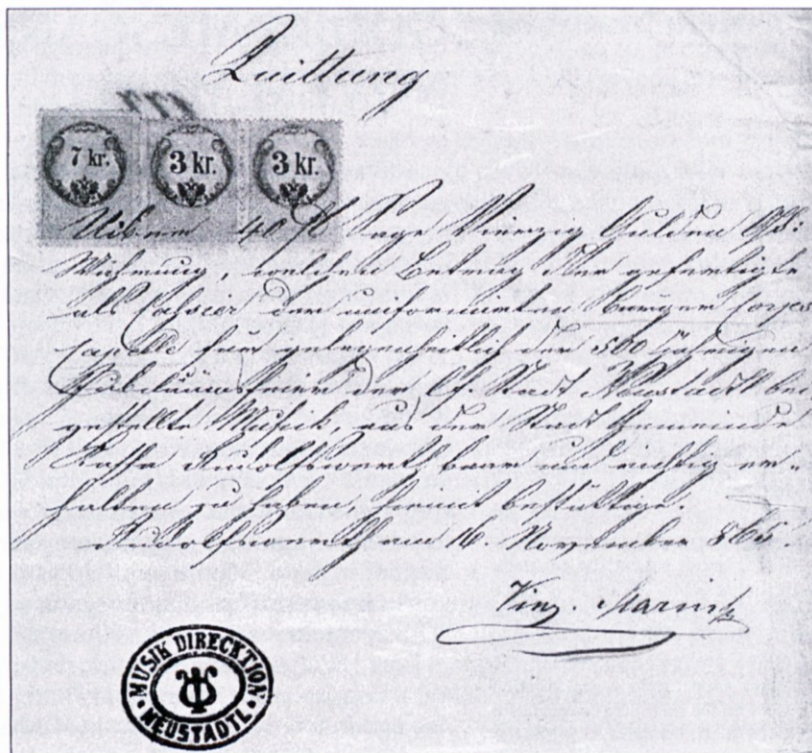 Quittung
7 kr. 3 kr. 3 kr.
Uiber 40 fl Sage Vierzig Gulden Ö.
Währung, welchen Betrag der gefertigte
als der uniformirten Bürger Corps
capelle für gelegenheitlich der 500 jährig
Jubiläumsfeier der Stadt Neustadtl bei
gestellte Musik, aus der Stadt
Cassa Rudolfswerth baar und richtig er
halten zu haben, hiemit bestättige.
Rudolfswerth am 16. November 865
Vinz
MUSIK DIRECKTION
NEUSTADTL